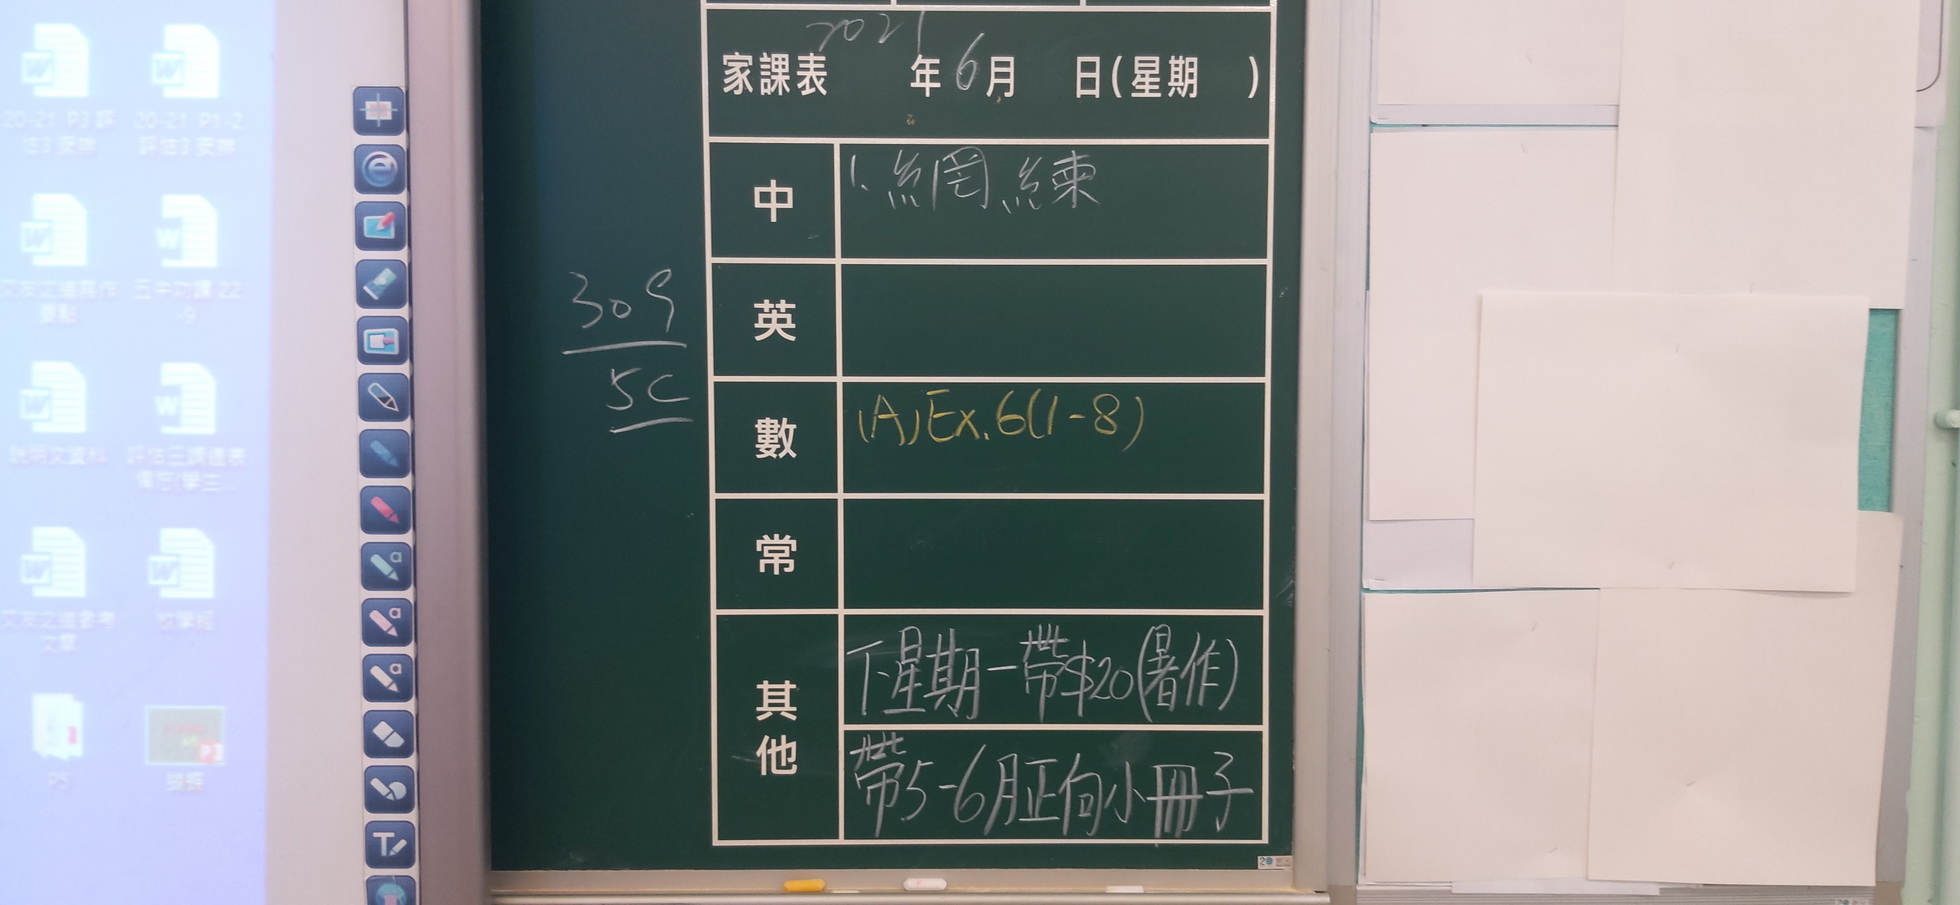 20-21 P3 評估3 安排
20-21 P1-2 評估3 安排
P5
2021
家課表 年6月 日(星期 )
中 1. 網練
英
數 (A) Ex. 6(1-8)
常
其他 下星期一帶$20(暑作)
帶5-6月正向小冊子
309
5C